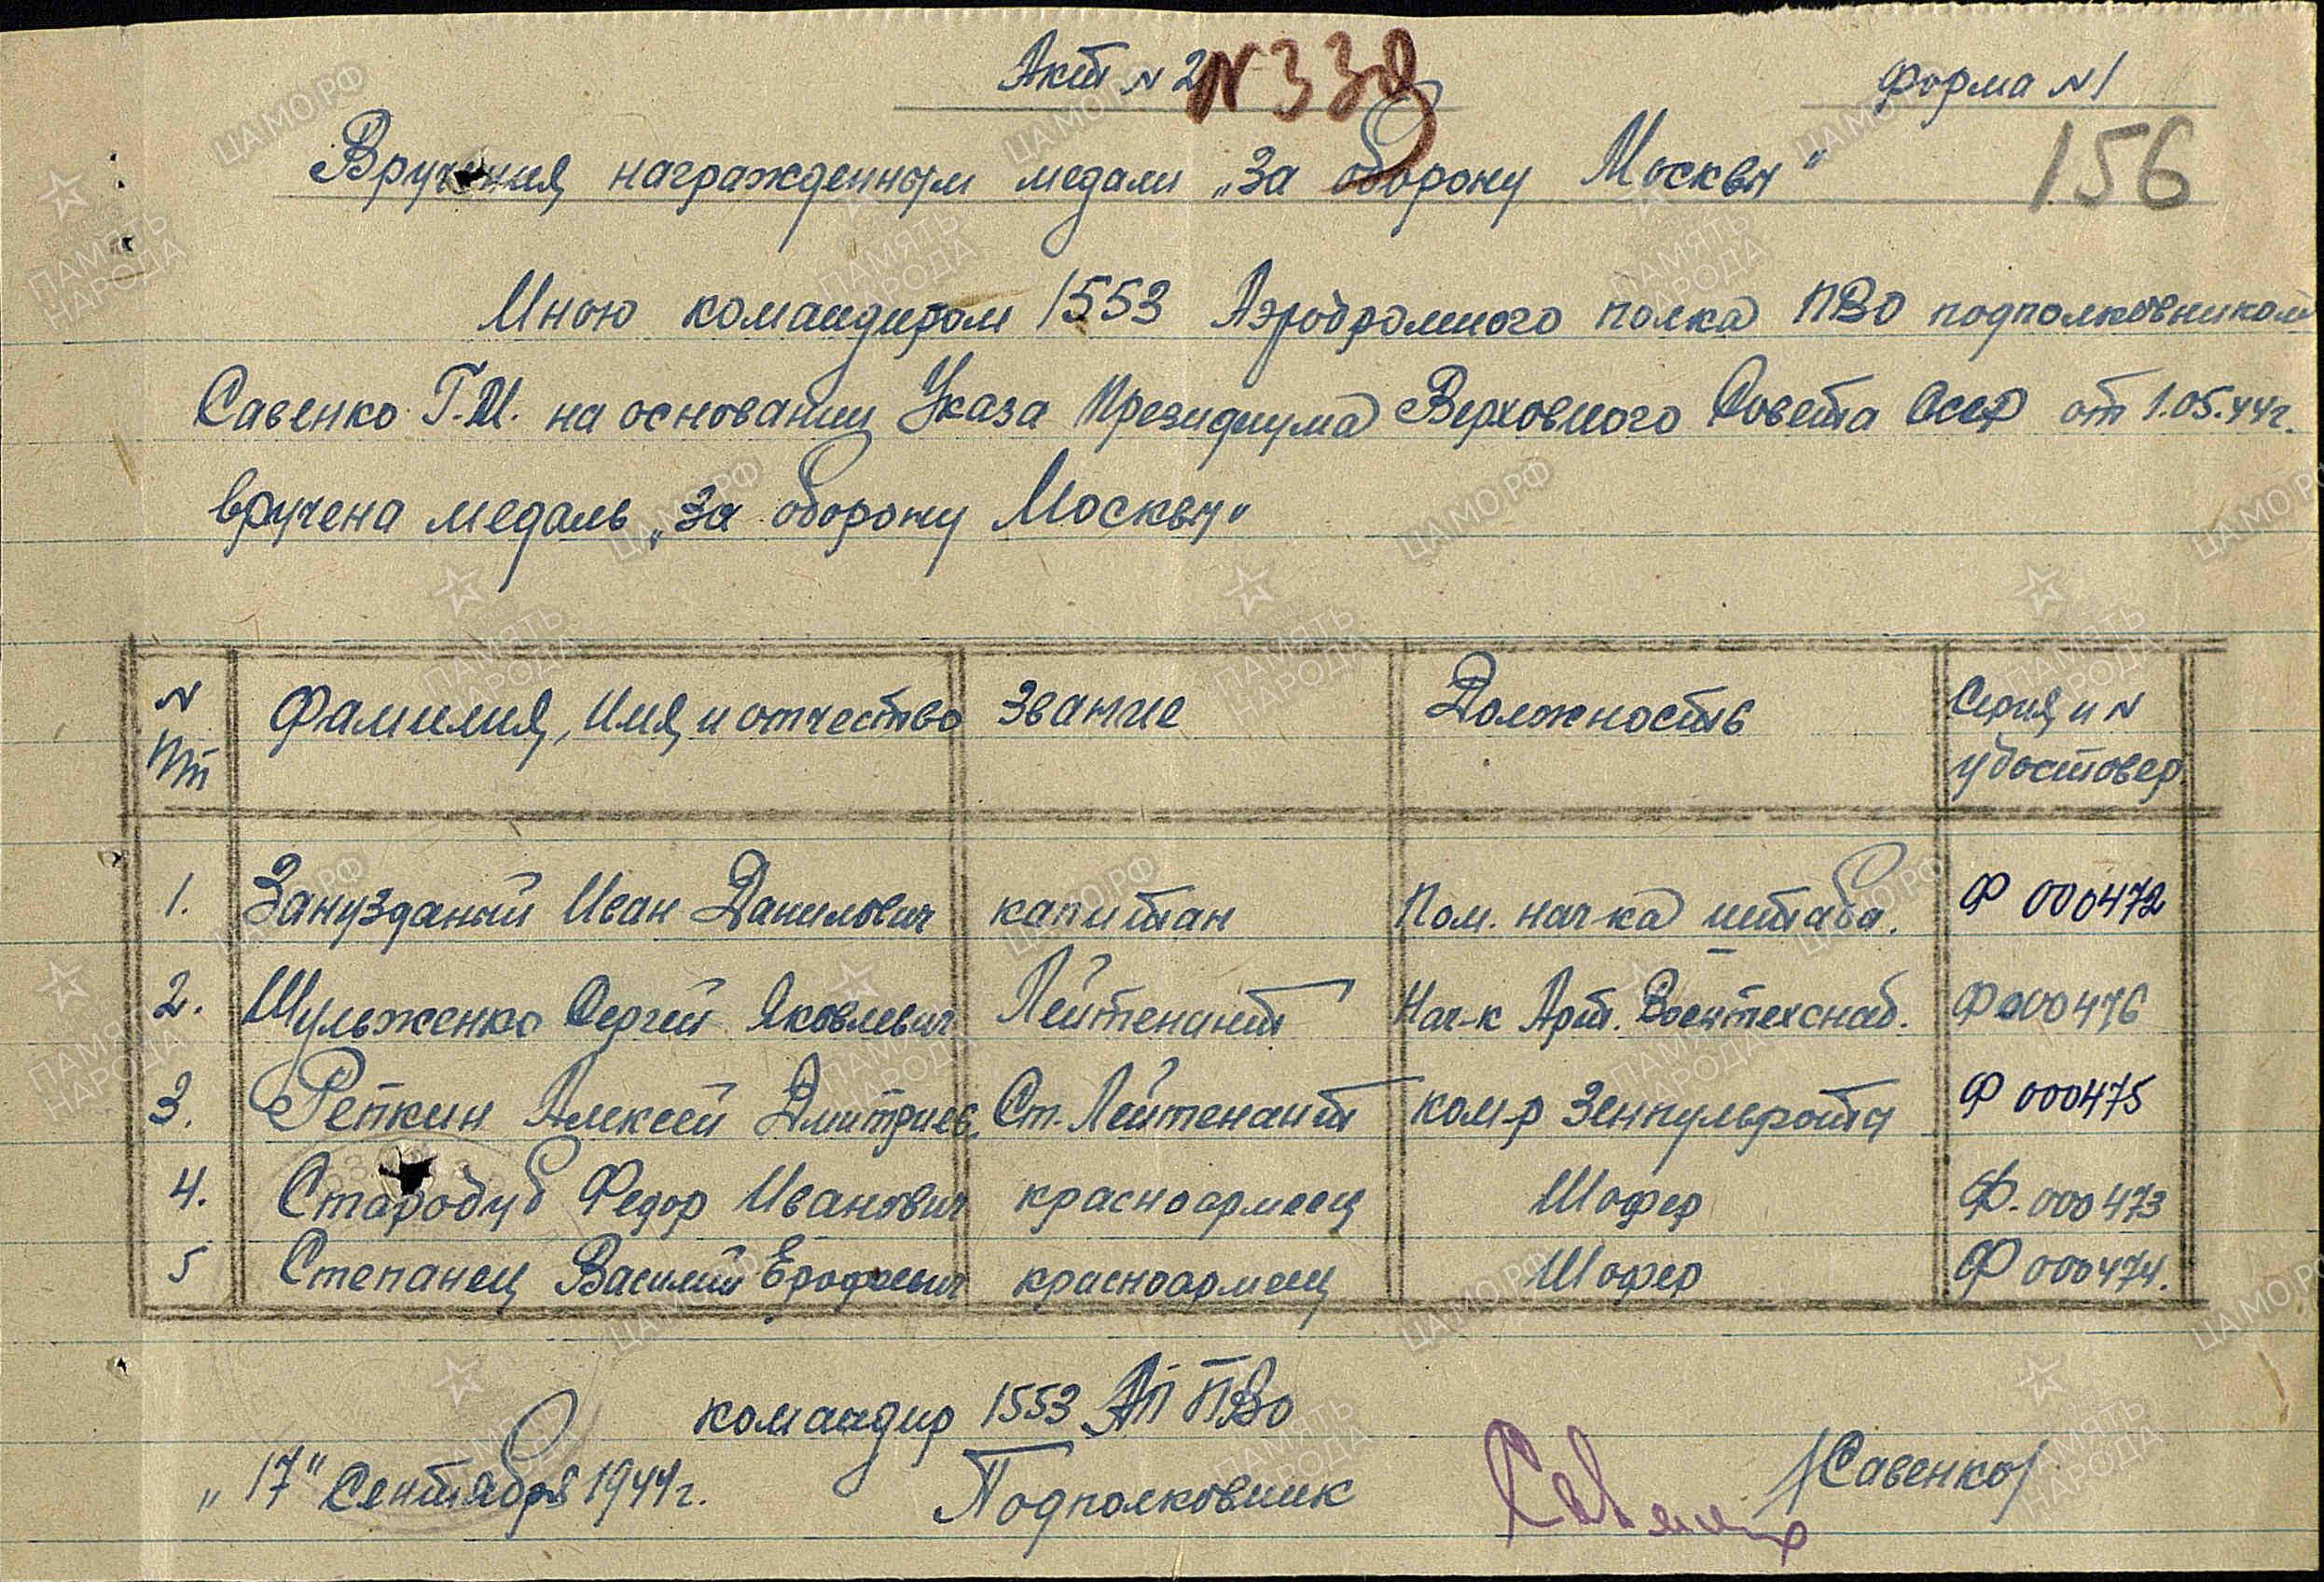 Акт N 2
N 338
форма N 1
Вручения награжденным медали „За оборону Москвы“
156
Мною командиром 1553 Аэродромного полка ПВО подполковником
Савенко Г.И. на основании Указа Президиума Верховного Совета СССР от 1.05.44г.
вручена медаль „За оборону Москвы“
N пп Фамилия, Имя и отчество Звание Должность Серия и N удостовер
1. Занузданый Иван Данилович капитан Пом. нач-ка штаба. Ф 000472
2. Шульженко Сергей Яковлевич Лейтенант Нач-к Арт. Воентехснаб. Ф 000476
3. Репкин Алексей Дмитриев. Ст. Лейтенант ком-р Зенпульроты Ф 000475
4. Стародуб Федор Иванович красноармеец Шофер Ф. 000473
5 Степанец Василий Ерофеевич красноармеец Шофер Ф 000474.
командир 1553 АП ПВО
„17“ Сентября 1944г. Подполковник Савенко /Савенко/
ЦАМО.РФ
ПАМЯТЬ НАРОДА